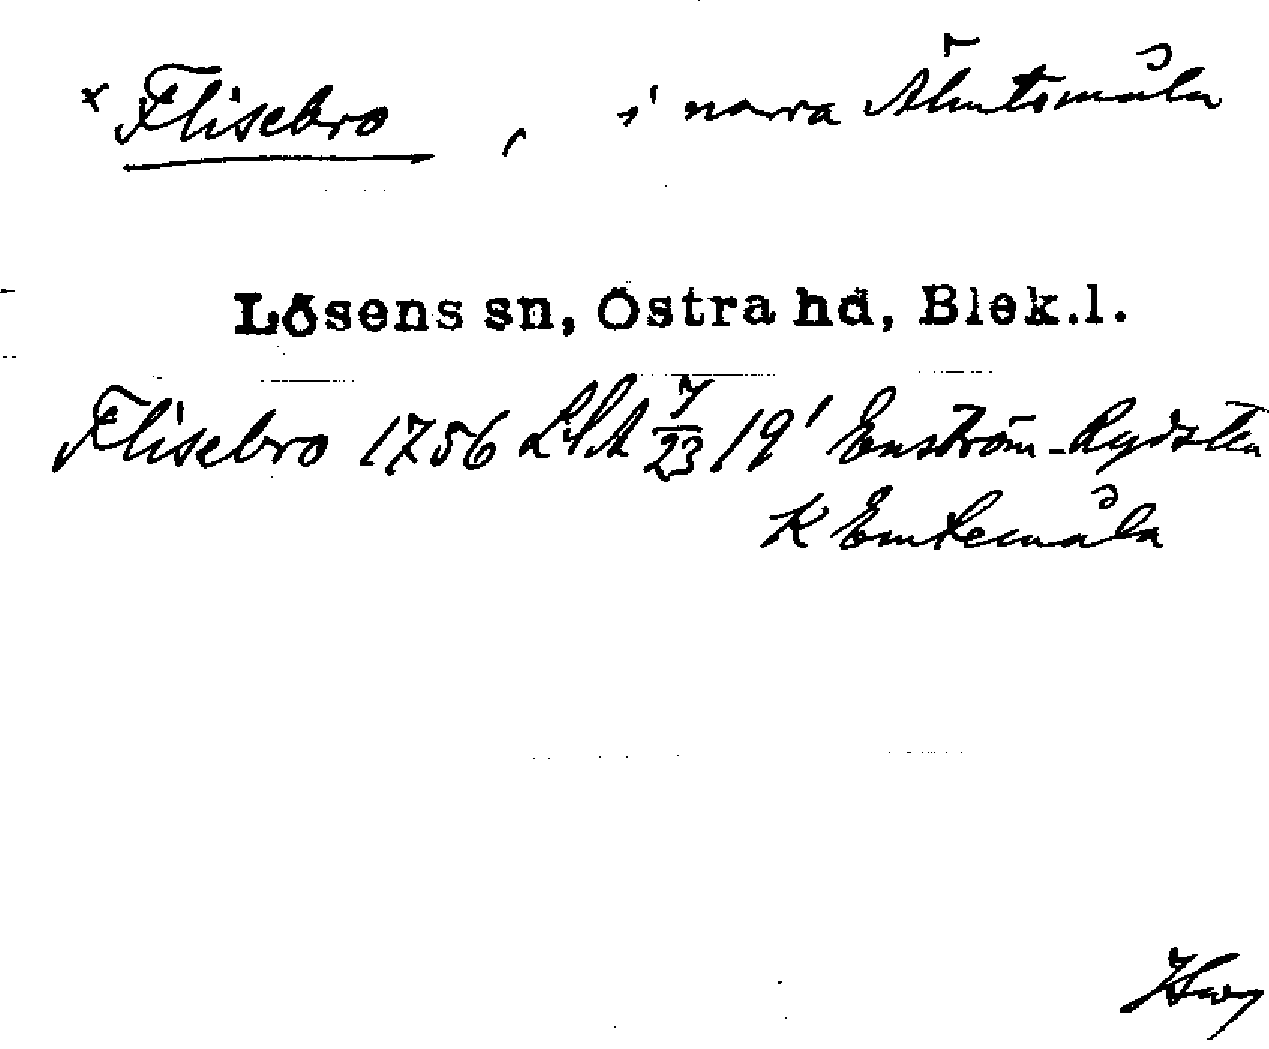 x Flisebro, i norra Älmtsmåla
Lösens sn, Östra hd, Blek.l.
Flisebro 1756 LSA 7/23 19' Enström-Rydsten
K Emtemåla